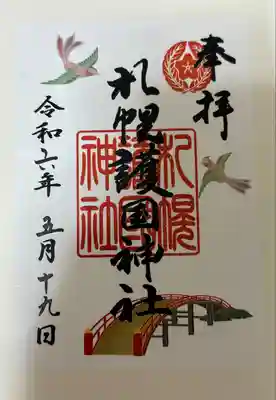 奉拝
札幌護国神社
札幌
護国
神社
令和六年 五月十九日